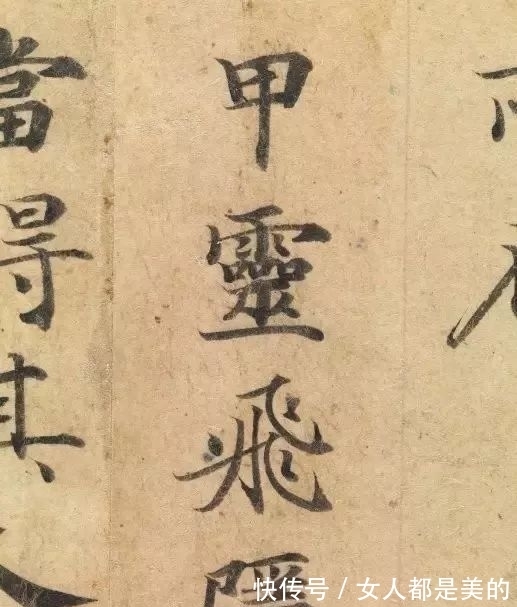 甲靈飛
當得其
快传号 / 女人都是美的